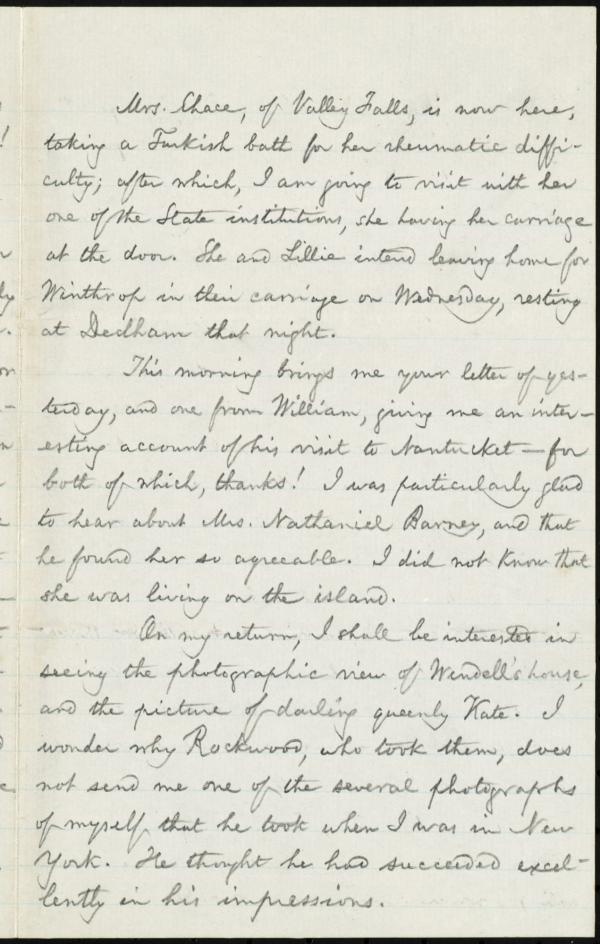 Mrs. Chace, of Valley Falls, is now here,
taking a Turkish bath for her rheumatic diffi-
culty; after which, I am going to visit with her
one of the State institutions, she having her carriage
at the door. She and Lillie intend leaving home for
Winthrop in their carriage on Wednesday, resting
at Dedham that night.
This morning brings me your letter of yes-
terday, and one from William, giving me an inter-
esting account of his visit to Nantucket — for
both of which, thanks! I was particularly glad
to hear about Mrs. Nathaniel Barney, and that
he found her so agreeable. I did not know that
she was living on the island.
On my return, I shall be interested in
seeing the photographic view of Wendell's house,
and the picture of darling queenly Kate. I
wonder why Rockwood, who took them, does
not send me one of the several photographs
of myself that he took when I was in New
York. He thought he had succeeded excel-
lently in his impressions.